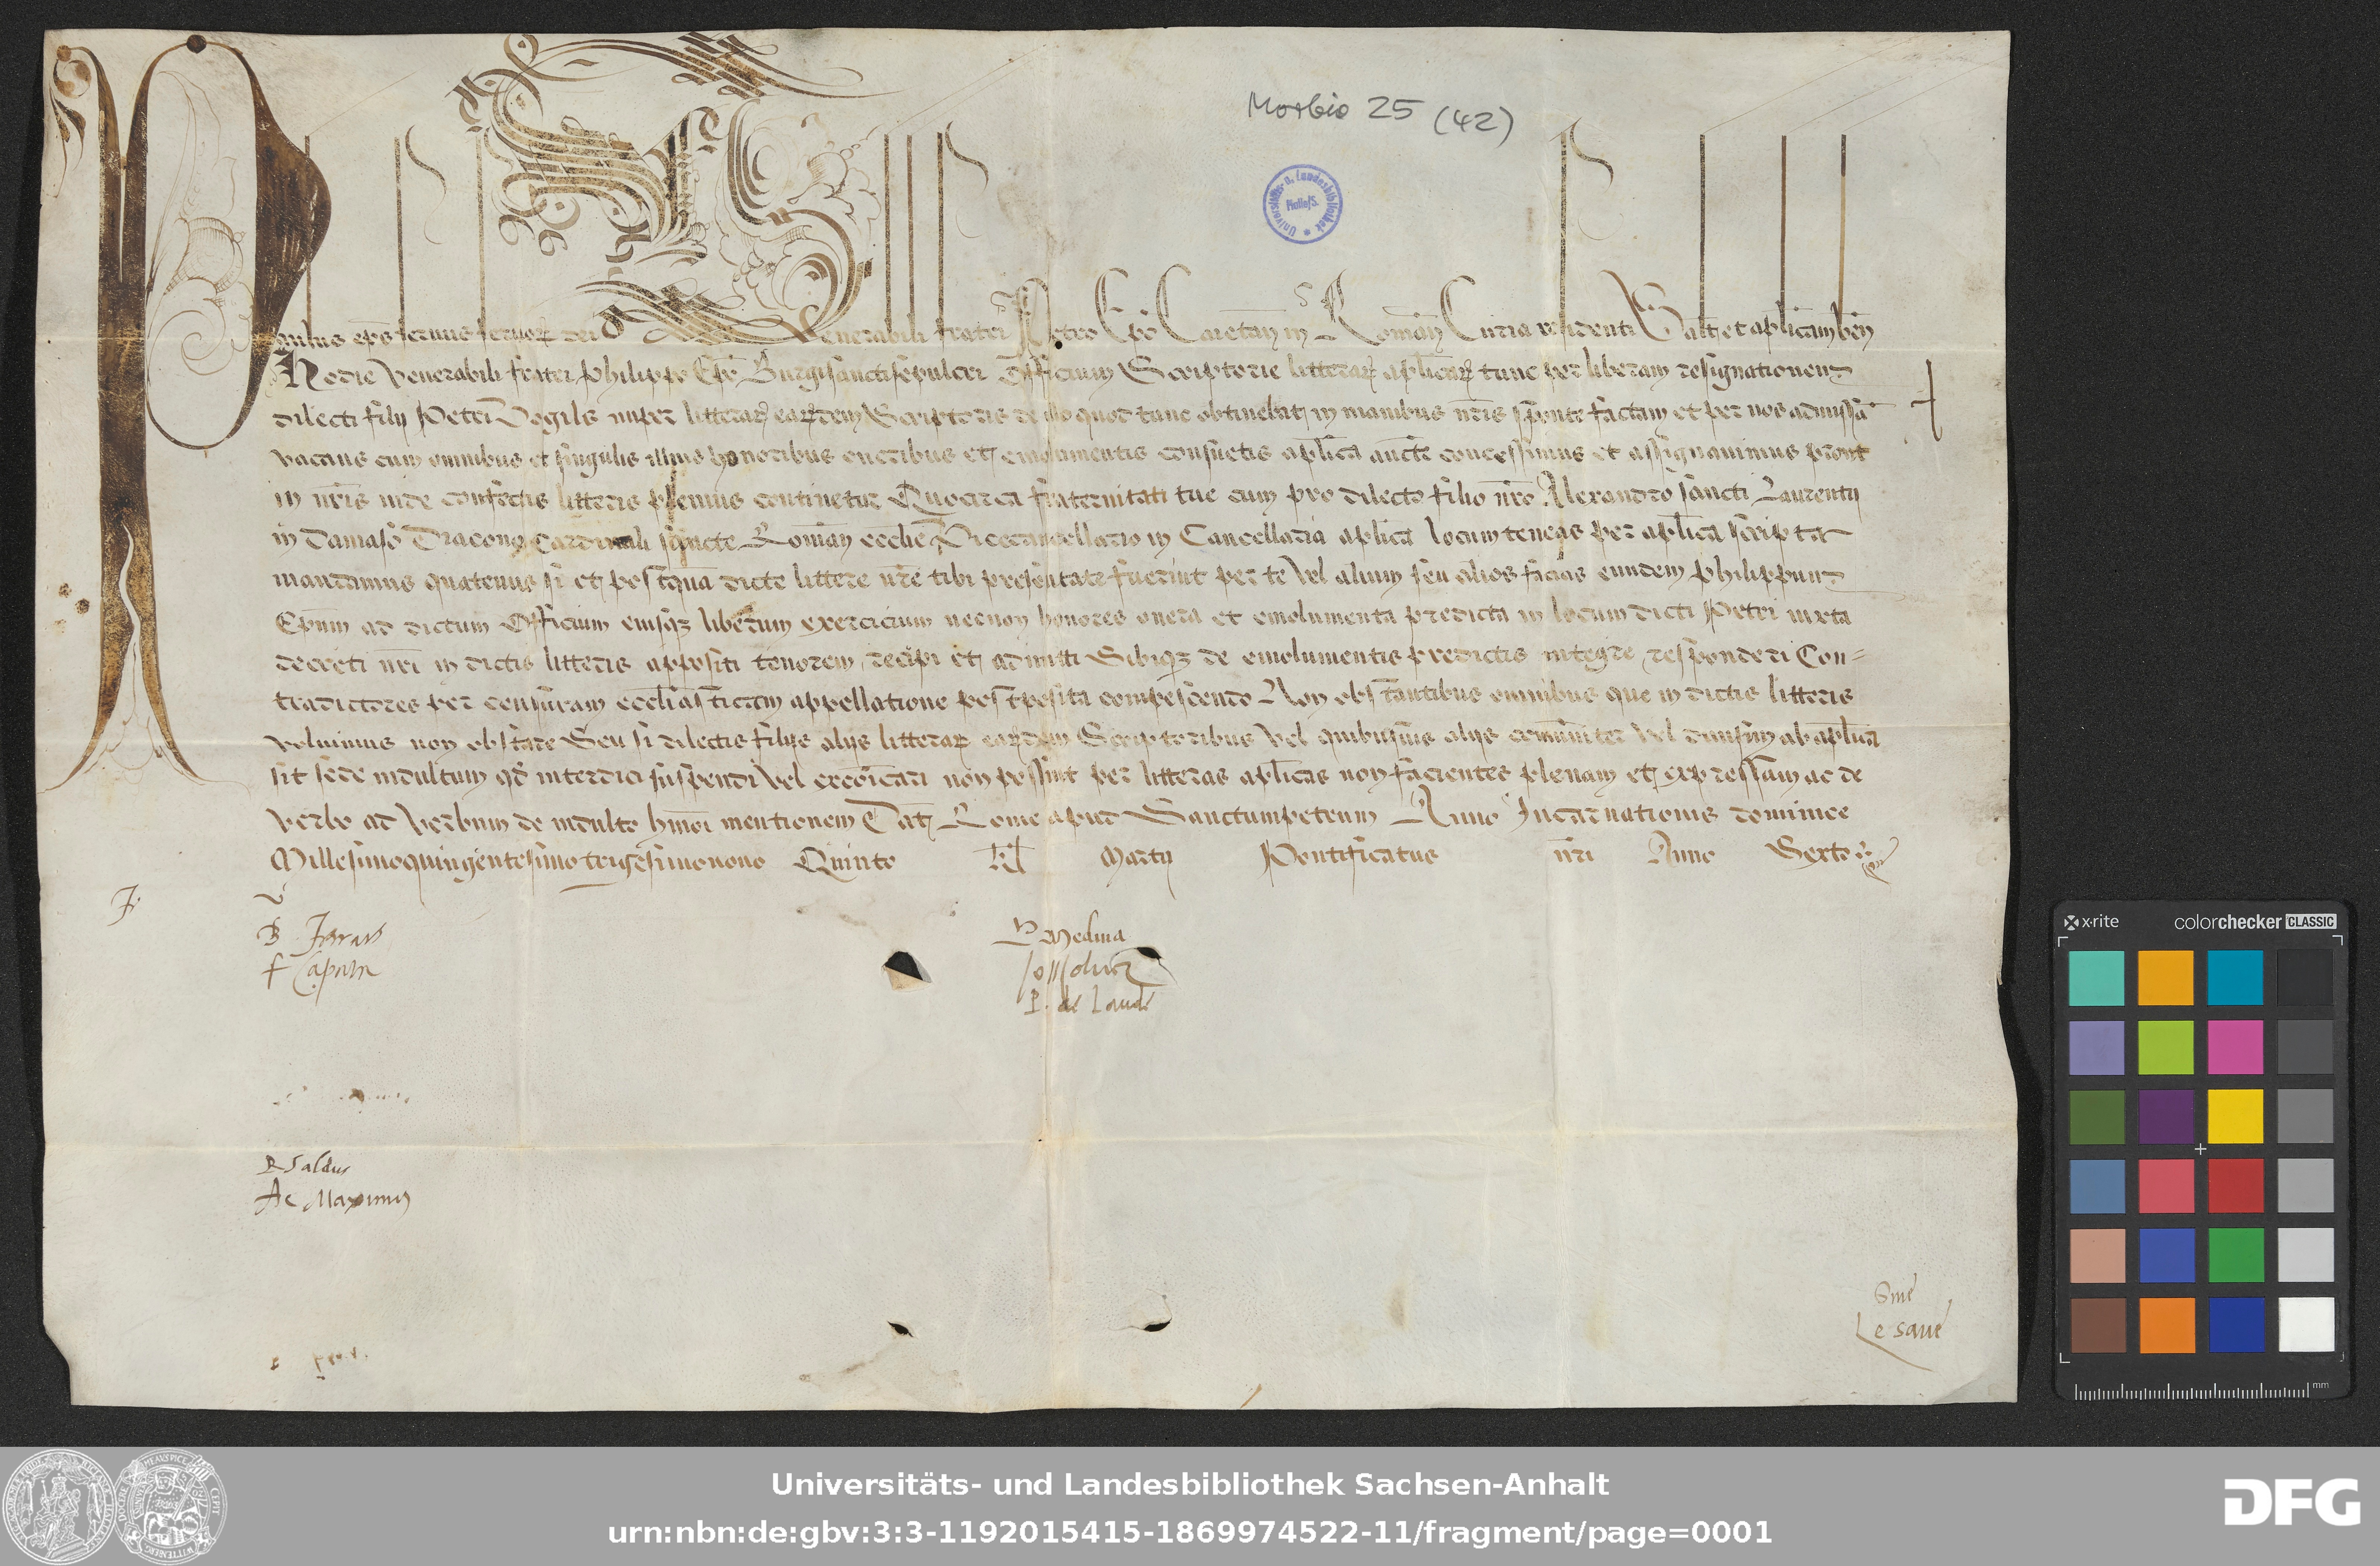 Morbio 25 (42)
Universitäts- u. Landesbibliothek Halle/S.
Paulus ep̄s servus servoꝝ dei Venerabili fratri Petro Ep̄o Caietan̄ in Roman̄ Curia residenti Salt̄ et aplīcam ben̄
Hodie Venerabili fratri Philippo Ep̄o Burgisanctisepulcri Officium Scriptorie litteraꝝ aplīcaꝝ tunc per liberam resignationem
dilecti filij Petri nuper litteraꝝ earꝫdem Scriptoris de illo quod tunc obtinebat in manibus nr̄is sponte factam et per nos admissā
vacans cum omnibus et singulis illius honoribus oneribus et emolumentis consuetis aplīca aucte concessimus et assignavimus prout
in nr̄is inde confectis litteris plenius continetur Quocirca fraternitati tue cum pro dilecto filio nr̄o Alexandro sancti Laurentij
in Damaso Diacono Cardinali sancte Roman̄ ecclie Vicecancellario in Cancellaria aplīca locumteneas per aplīca scripta
mandamus quatenus si et postquā dicte littere nr̄e tibi presentate fuerint per te vel alium seu alios facias eundem Philippum
Epum̄ ad dictum Officium eiusqꝫ liberum exercicium necnon honores onera et emolumenta predicta in locum dicti Petri iuxta
decreti nr̄i in dictis litteris appositi tenorem recipi et admitti Sibiqꝫ de emolumentis predictis integre responderi Con-
tradictores per censuram ecclīasticam appellatione postposita compescendo Non obstantibus omnibus que in dictis litteris
volumus non obstare Seu si dilectis filijs alijs litteraꝝ earꝫdem Scriptoribus vel quibusvis alijs comūniter vel divisim ab aplīca
sit sede indultum qđ interdici suspendi vel excōicari non possint per litteras aplīcas non facientes plenam et expressam ac de
verbo ad verbum de indulto hmōi mentionem Dat̄ Rome apud Sanctumpetrum Anno Incarnationis dominice
Millesimoquingentesimotrigesimonono Quinto Kl̄ Martij Pontificatus nr̄i Anno Sexto
B
F Capnia
Medina
P. de Laude
P Saldus
A c Maximis
x-rite colorchecker CLASSIC
mm
Universitäts- und Landesbibliothek Sachsen-Anhalt
urn:nbn:de:gbv:3:3-1192015415-1869974522-11/fragment/page=0001
DFG